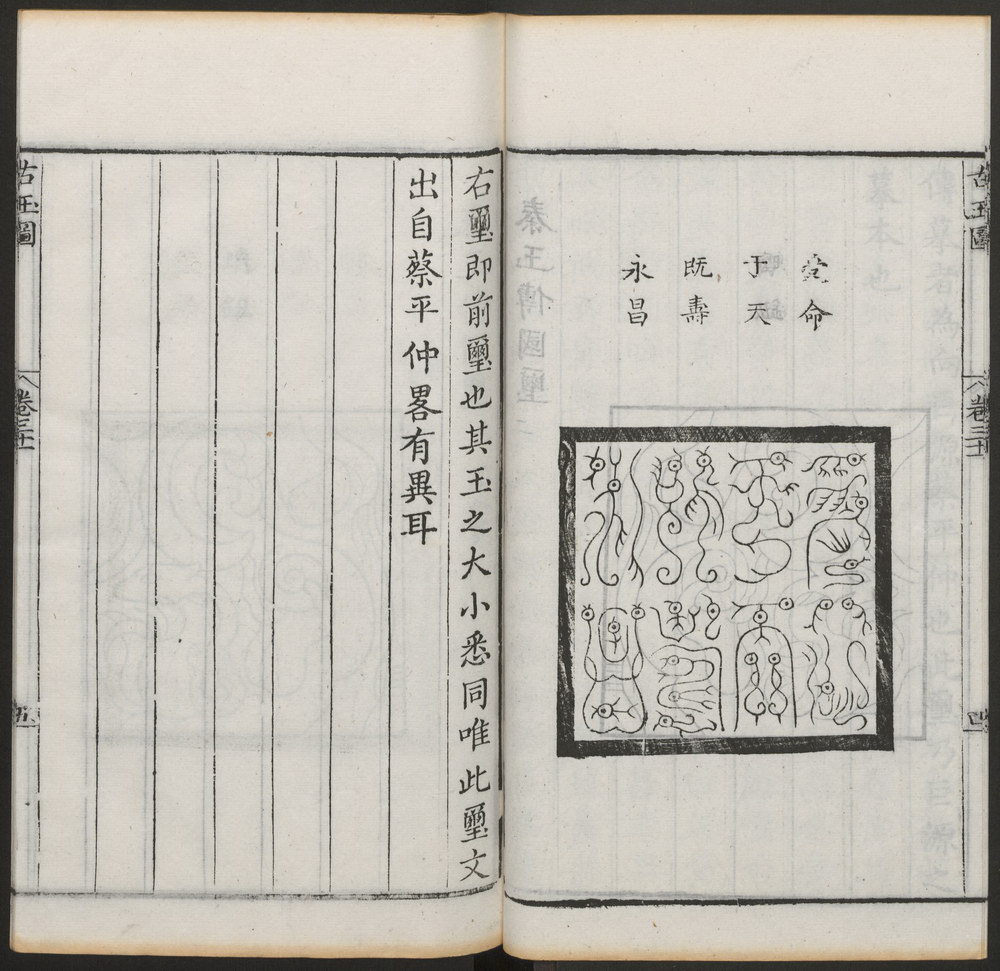 受命
于天
既壽
永昌
古玉圖
卷三十
四
右璽即前璽也其玉之大小悉同唯此璽文
出自蔡平仲畧有異耳
古玉圖
卷三十
五